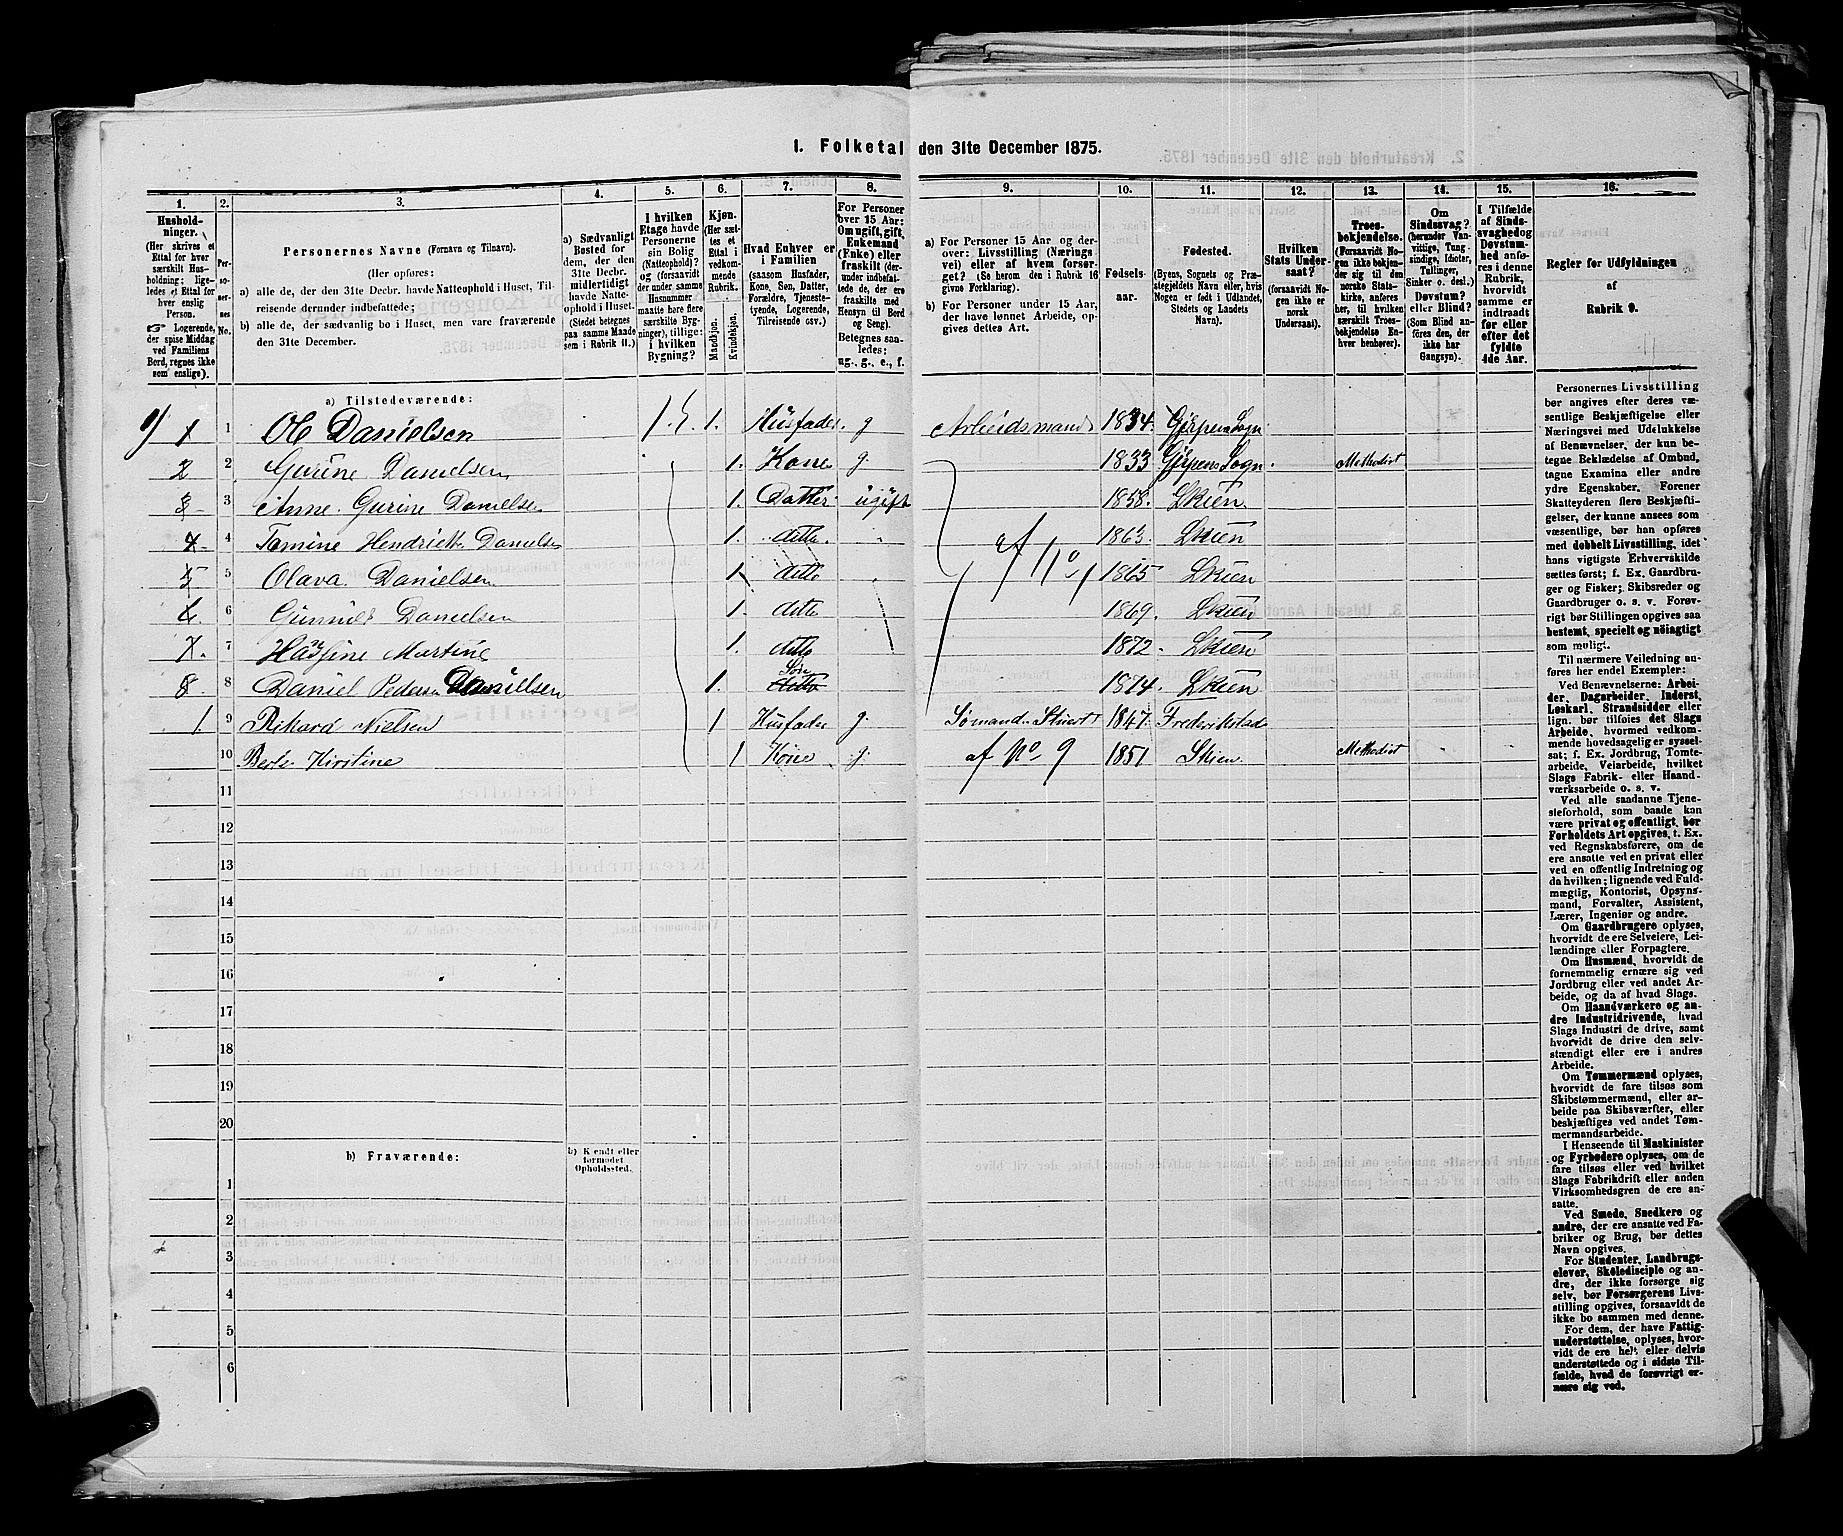 1. Folketal den 31te December 1875.
1.
Husholdninger.
(Her skrives et Ettal for hver særskilt Husholdning; ligeledes et Ettal for hver enslig Person.
☞ Logerende, der spise Middag ved Familiens Bord, regnes ikke som enslige).
2.
Personernes No.
3.
Personernes Navne (Fornavn og Tilnavn).
(Her opføres:
a) alle de, der den 31te Decbr. havde Natteophold i Huset, Tilreisende derunder indbefattede;
b) alle de, der sædvanlig bo i Huset, men vare fraværende den 31te December.
4.
a) Sædvanligt Bosted for dem, der den 31te Decbr. midlertidigt havde Natteophold i Huset.
(Stedet betegnes paa samme Maade som i Rubrik 11.)
5.
I hvilken Etage havde Personerne sin Bolig (Natteophold)? og (forsaavidt der under samme Husnummer maatte høre flere særskilte Bygninger), tillige: i hvilken Bygning?
6.
Kjøn.
(Her sættes et Ettal i vedkommende Rubrik.
Mandkjøn.
Kvindekjøn.
7.
Hvad Enhver er i Familien
(saasom Husfader, Kone, Søn, Datter, Forældre, Tjenestetyende, Logerende, Tilreisende osv.)
8.
For Personer over 15 Aar: Om ugift, gift, Enkemand (Enke) eller fraskilt (derunder indbefattede de, der ere fraskilte med Hensyn til Bord og Seng).
Betegnes saaledes:
ug., g., e., f.
9.
a) For Personer 15 Aar og derover: Livsstilling (Næringsvei) eller af hvem forsørget? (Se herom den i Rubrik 16 givne Forklaring).
b) For Personer under 15 Aar, der have lønnet Arbeide, opgives dettes Art.
10.
Fødselsaar.
11.
Fødested.
(Byens, Sognets og Præstegjeldets Navn eller, hvis Nogen er født i Udlandet, Stedets og Landets Navn).
12.
Hvilken Stats Undersaat?
(forsaavidt Nogen ikke er norsk Undersaat).
13.
Troesbekjendelse.
(Forsaavidt Nogen ikke bekjender sig til den norske Statskirke, anføres her, til hvilken særskilt Troesbekjendelse Enhver henhører).
14.
Om Sindssvag?
(herunder Vanvittige, Tungsindige, Idioter, Tullinger, Sinker o. desl.)
Døvstum?
eller Blind?
(Som Blind anføres den, der ikke har Gangsyn).
15.
I Tilfælde af Sindssvaghed og Døvstumhed anføres i denne Rubrik, hvorvidt samme er indtraadt før eller efter det fyldte 4de Aar.
16.
Regler for Udfyldningen
af
Rubrik 9.
a) Tilstedeværende:
1 1 Ole Danielsen 1. 1. Husfader g Arbeidsmand 1834. Gjerpens Sogn
2 2 Gurine Danielsen 1. Kone g. 1833 Gjerpens Sogn. Methodist
3 3 Anne Gurine Danielsen 1. Datter ugift 1858. Skien
4 4 Tomine Hendrikke Danielsen 1. ditto 1863. Skien
5 5 Olava Danielsen 1. ditto af No 1 1865 Skien
6 6 Gunnild Danielsen 1. ditto 1869. Skien
7. 7 Martine 1. ditto 1872 Skien
8. 8 Daniel Pedersen Danielsen 1. ditto Søn 1874. Skien
1. 9 Rikard Nielsen 1 Husfader g. Sømand 1847. Fredrikstad
10 Berte Kirstine 1 Kone g. af No 9 1851 Skien Methodist
11
12
13
14
15
16
17
18
19
20
b) Fraværende:
b) Kjendt eller formodet Opholdssted.
1
2
3
4
5
6
Personernes Livsstilling
bør angives efter deres væ-
sentlige Beskjæftigelse eller
Næringsvei med Udelukkelse
af Benævnelser, der kun be-
tegne Beklædelse af Ombud,
tagne Examina eller andre
ydre Egenskaber. Forener
Skatteyderen flere Beskjæfti-
gelser, der kunne ansees som
væsentlige, bør han opføres
med dobbelt Livsstilling, idet
hans vigtigste Erhvervskilde
sættes først; f. Ex. Gaardbru-
ger og Fisker; Skibsreder og
Gaardbruger o. s. v. Forøv-
rigt bør Stillingen opgives saa
bestemt, specielt og nøiagtigt
som muligt.
Til nærmere Veiledning an-
føres her endel Exempler:
Ved Benævnelserne: Arbei-
der, Dagarbeider, Inderst,
Løskarl, Strandsidder eller
lign. bør tilføies det Slags
Arbeide, hvormed vedkom-
mende hovedsagelig er syssel-
sat; f. Ex. Jordbrug, Tomte-
arbeide, Veiarbeide, hvilket
Slags Fabrik- eller Haand-
værksarbeide o. s. v.
Ved alle saadanne Tjene-
steforhold, som baade kan
være privat og offentligt, bør
Forholdets Art opgives, t. Ex.
ved Regnskabsførere, om de
ere ansatte ved en privat eller
ved en offentlig Indretning og
da hvilken; lignende ved Fuld-
mægtig, Kontorist, Opsyns-
mand, Forvalter, Assistent,
Lærer, Ingeniør og andre.
Om Gaardbrugere oplyses,
hvorvidt de ere Selveiere, Lei-
lændinge eller Forpagtere.
Om Husmænd, hvorvidt de
fornemmelig ernære sig ved
Jordbrug eller ved andet Ar-
beide, og da af hvad Slags.
Om Haandværkere og an-
dre Industridrivende, hvad
Slags Industri de drive, samt
hvorvidt de drive den selv-
stændigt eller ere i andres
Arbeide.
Om Tømmermænd oplyses,
hvorvidt de fare tilsøs som
Skibstømmermænd, eller ar-
beide paa Skibsværfter, eller
beskjæftiges ved andet Tøm-
mermandsarbeide.
I Henseende til Maskinister
og Fyrbødere oplyses, om de
fare tilsøs eller ved hvilket
Slags Fabrikdrift eller anden
Virksomhedsgren de ere an-
satte.
Ved Smede, Snedkere og
andre, der ere ansatte ved Fa-
briker og Brug, bør dettes
Navn opgives.
For Studenter, Landbrugs-
elever, Skoledisciple og an-
dre, der ikke forsørge sig
selv, bør Forsørgerens Livs-
stilling opgives, forsaavidt de
ikke bo sammen med denne.
For dem, der have Fattig-
understøttelse, oplyses, hvor-
vidt de ere helt eller delvis
understøttede og i sidste Til-
fælde, hvad de forøvrigt er-
nære sig ved.